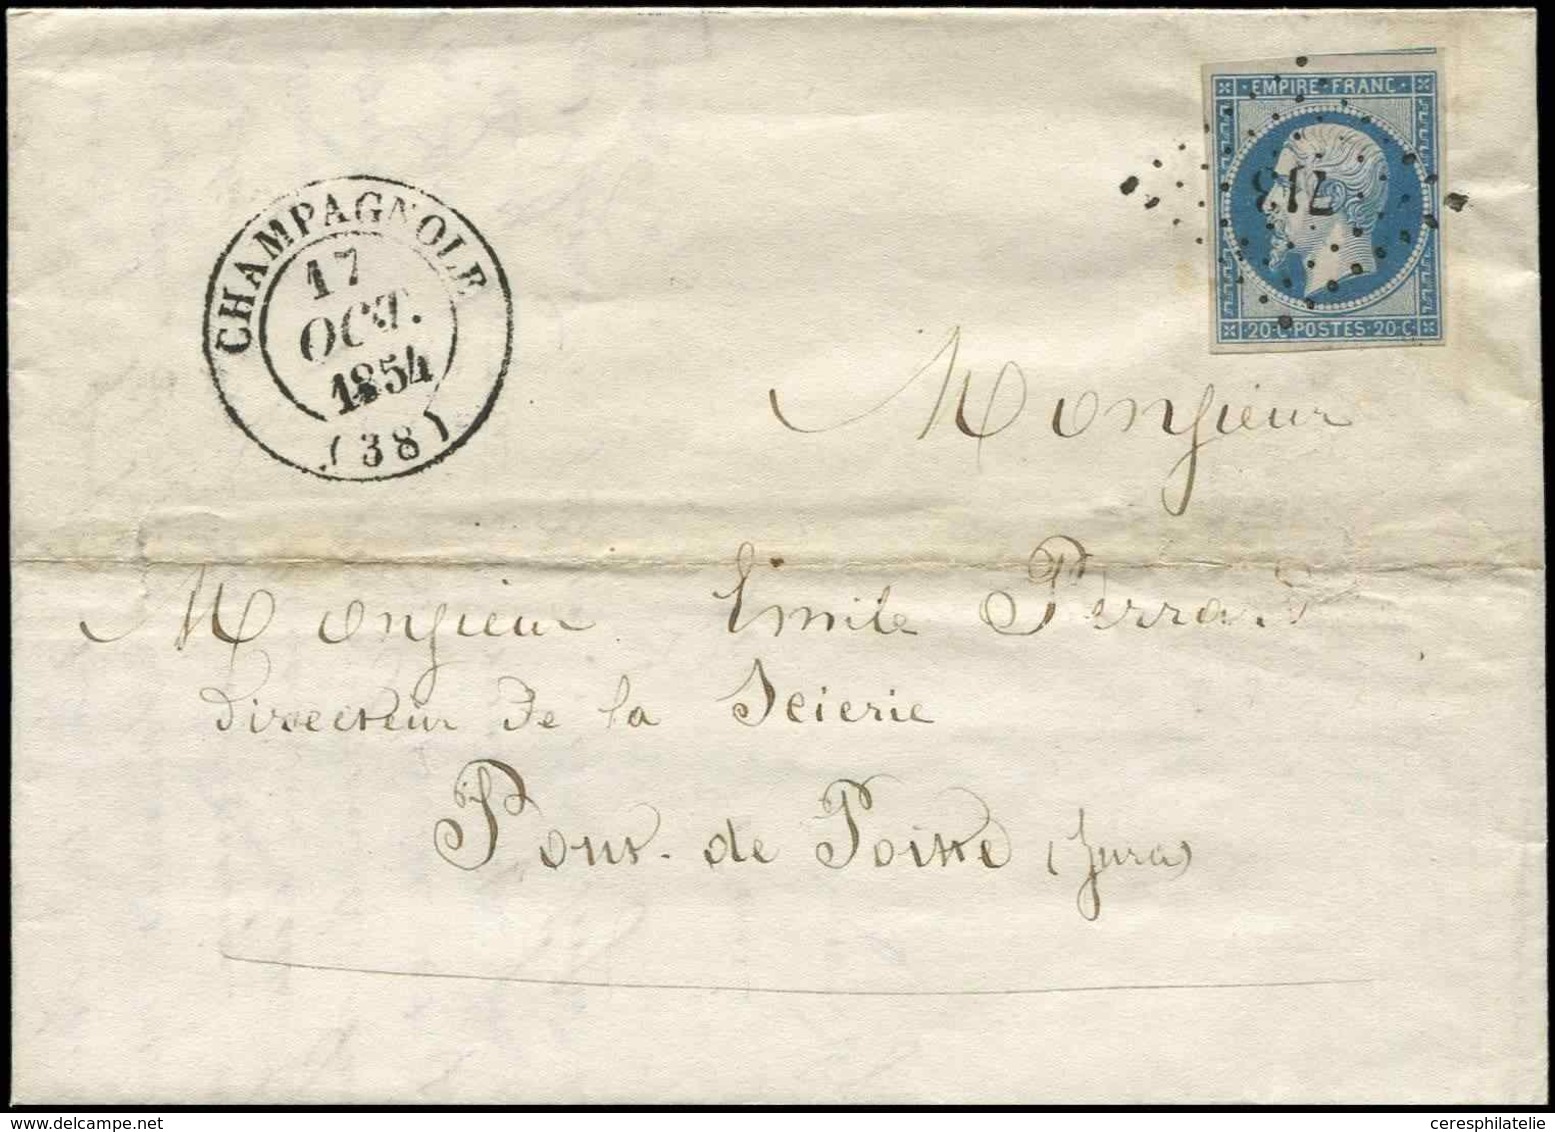 EMPIRE FRANC
713
20·C·POSTES·20·C
CHAMPAGNOLE
17
OCT.
1854
(38)
Monsieur
Monsieur Emile Perrard
directeur de la Scierie
Pont de Poitte (Jura)
ceresphilatelie